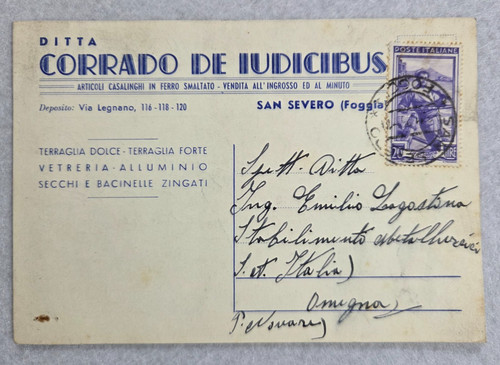 DITTA
CORRADO DE IUDICIBUS
ARTICOLI CASALINGHI IN FERRO SMALTATO - VENDITA ALL'INGROSSO ED AL MINUTO
Deposito: Via Legnano, 116 - 118 - 120
SAN SEVERO (Foggia)
POSTE ITALIANE
TERRAGLIA DOLCE - TERRAGLIA FORTE
VETRERIA - ALLUMINIO
SECCHI E BACINELLE ZINGATI
Spett. Ditta
Ing. Emilio Lagostina
Stabilimento
Italia)
Omegna
P. Novara)